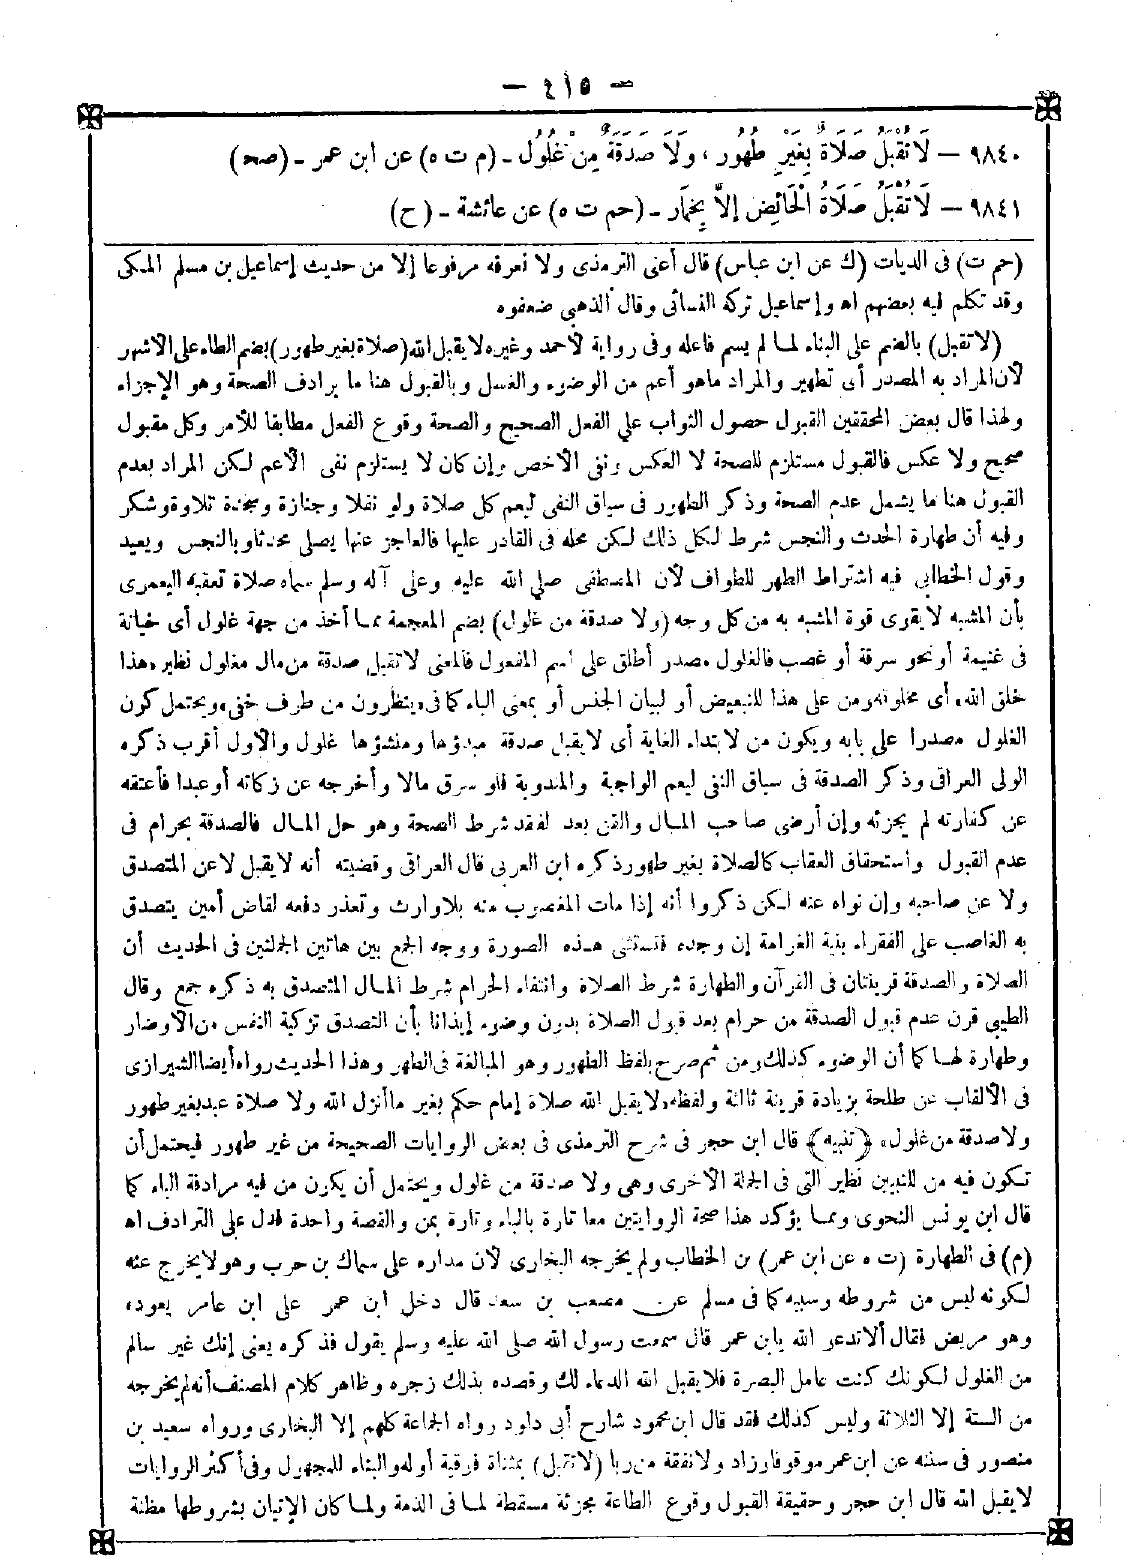 — ٤١٥ —
٩٨٤٠ — لَا تُقْبَلُ صَلَاةٌ بِغَيْرِ طُهُورٍ ، وَلَا صَدَقَةٌ مِنْ غُلُولٍ - (م ت ه) عن ابن عمر - (صح)
٩٨٤١ — لَا تُقْبَلُ صَلَاةُ الْحَائِضِ إِلَّا بِخِمَارٍ - (حم ت ه) عن عائشة - (ح)
(حم ت) فى الديات (ك عن ابن عباس) قال أعنى الترمذى ولا نعرفه مرفوعا إلا من حديث إسماعيل بن مسلم المكى
وقد تكلم فيه بعضهم اه وإسماعيل تركه النسائى وقال الذهبى ضعفوه
(لا تقبل) بالضم على البناء لما لم يسم فاعله وفى رواية لأحمد وغيره لا يقبل الله (صلاة بغير طهور) بضم الطاء على الأشهر
لأن المراد به المصدر أى تطهير والمراد ماهو أعم من الوضوء والغسل وبالقبول هنا ما يرادف الصحة وهو الإجزاء
ولهذا قال بعض المحققين القبول حصول الثواب على الفعل الصحيح والصحة وقوع الفعل مطابقا للأمر وكل مقبول
صحيح ولا عكس فالقبول مستلزم للصحة لا العكس ونفى الأخص وإن كان لا يستلزم نفى الأعم لكن المراد بعدم
القبول هنا ما يشمل عدم الصحة وذكر الطهور فى سياق النفى ليعم كل صلاة ولو نفلا وجنازة وسجدة تلاوة وشكر
وفيه أن طهارة الحدث والنجس شرط لكل ذلك لكن محله فى القادر عليها فالعاجز عنها يصلى محدثا وبالنجس ويعيد
وقول الخطابى فيه اشتراط الطهر للطواف لأن المصطفى صلى الله عليه وعلى آله وسلم سماه صلاة تعقبه اليعمرى
بأن المشبه لا يقوى قوة المشبه به من كل وجه (ولا صدقة من غلول) بضم المعجمة مما أخذ من جهة غلول أى خيانة
فى غنيمة أو نحو سرقة أو غصب فالغلول مصدر أطلق على اسم المفعول فالمعنى لا تقبل صدقة من مال مغلول نظير «هذا
خلق الله» أى مخلوقه ومن على هذا للتبعيض أو لبيان الجنس أو بمعنى الباء كما فى «ينظرون من طرف خفى» ويحتمل كون
الغلول مصدرا على بابه ويكون من لابتداء الغاية أى لا يقبل صدقة مبدؤها ومنشؤها غلول والأول أقرب ذكره
الولى العراقى وذكر الصدقة فى سياق النفى ليعم الواجبة والمندوبة فلو سرق مالا وأخرجه عن زكاته أو عبدا فأعتقه
عن كفارته لم يجزئه وإن أرضى صاحب المال والقن بعد لفقد شرط الصحة وهو حل المال فالصدقة بحرام فى
عدم القبول واستحقاق العقاب كالصلاة بغير طهور ذكره ابن العربى قال العراقى وقضيته أنه لا يقبل لا عن المتصدق
ولا عن صاحبه وإن نواه عنه لكن ذكروا أنه إذا مات المغصوب منه بلا وارث وتعذر دفعه لقاض أمين يتصدق
به الغاصب على الفقراء بنية الغرامة إن وجده فتستثنى هذه الصورة ووجه الجمع بين هاتين الجملتين فى الحديث أن
الصلاة والصدقة قرينتان فى القرآن والطهارة شرط الصلاة وانتفاء الحرام شرط المال المتصدق به ذكره جمع وقال
الطيبى قرن عدم قبول الصدقة من حرام بعد قبول الصلاة بدون وضوء إيذانا بأن التصدق تزكية النفس من الأوضار
وطهارة لها كما أن الوضوء كذلك ومن ثم صرح بلفظ الطهور وهو المبالغة فى الطهر وهذا الحديث رواه أيضا الشيرازى
فى الألقاب عن طلحة بزيادة قرينة ثالثة ولفظه «لا يقبل الله صلاة إمام حكم بغير ما أنزل الله ولا صلاة عبد بغير طهور
ولا صدقة من غلول» ﴿تنبيه﴾ قال ابن حجر فى شرح الترمذى فى بعض الروايات الصحيحة من غير طهور فيحتمل أن
تكون فيه من للتبيين نظير التى فى الجملة الأخرى وهى ولا صدقة من غلول ويحتمل أن يكون من فيه مرادفة الباء كما
قال ابن يونس النحوى ومما يؤكد هذا صحة الروايتين معا تارة بالباء وتارة بمن والقصة واحدة فدل على الترادف اه
(م) فى الطهارة (ت ه عن ابن عمر) بن الخطاب ولم يخرجه البخارى لأن مداره على سماك بن حرب وهو لا يخرج عنه
لكونه ليس من شروطه وسببه كما فى مسلم عن مصعب بن سعد قال دخل ابن عمر على ابن عامر يعوده
وهو مريض فقال ألا تدعو الله يابن عمر قال سمعت رسول الله صلى الله عليه وسلم يقول فذكره يعنى إنك غير سالم
من الغلول لكونك كنت عامل البصرة فلا يقبل الله الدعاء لك وقصده بذلك زجره وظاهر كلام المصنف أنه لم يخرجه
من الستة إلا الثلاثة وليس كذلك فقد قال ابن محمود شارح أبى داود رواه الجماعة كلهم إلا البخارى ورواه سعيد بن
منصور فى سننه عن ابن عمر موقوفا وزاد ولا نفقة من ربا (لا تقبل) بمثناة فوقية أوله والبناء للمجهول وفى أكثر الروايات
لا يقبل الله قال ابن حجر وحقيقة القبول وقوع الطاعة مجزئة مسقطة لما فى الذمة ولما كان الإتيان بشروطها مظنة